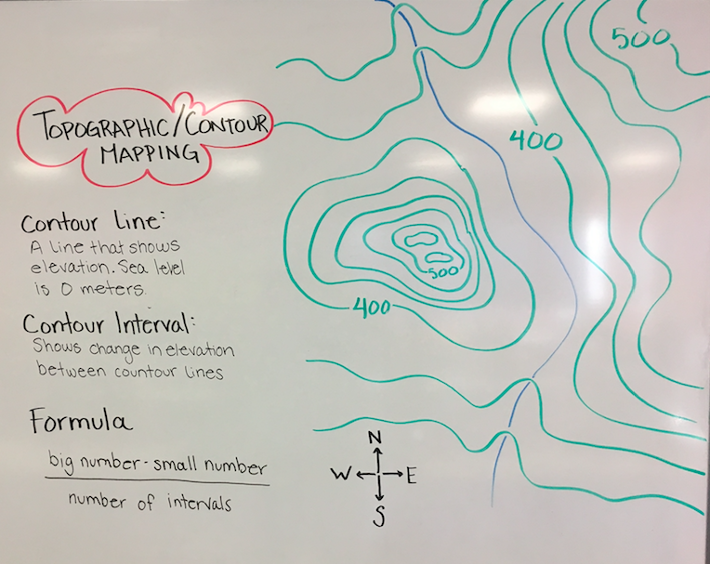 TOPOGRAPHIC/CONTOUR
MAPPING
Contour Line:
A line that shows
elevation. Sea level
is 0 meters.
Contour Interval:
Shows change in elevation
between countour lines
Formula
big number - small number
number of intervals
500
400
500
400
N
W E
S